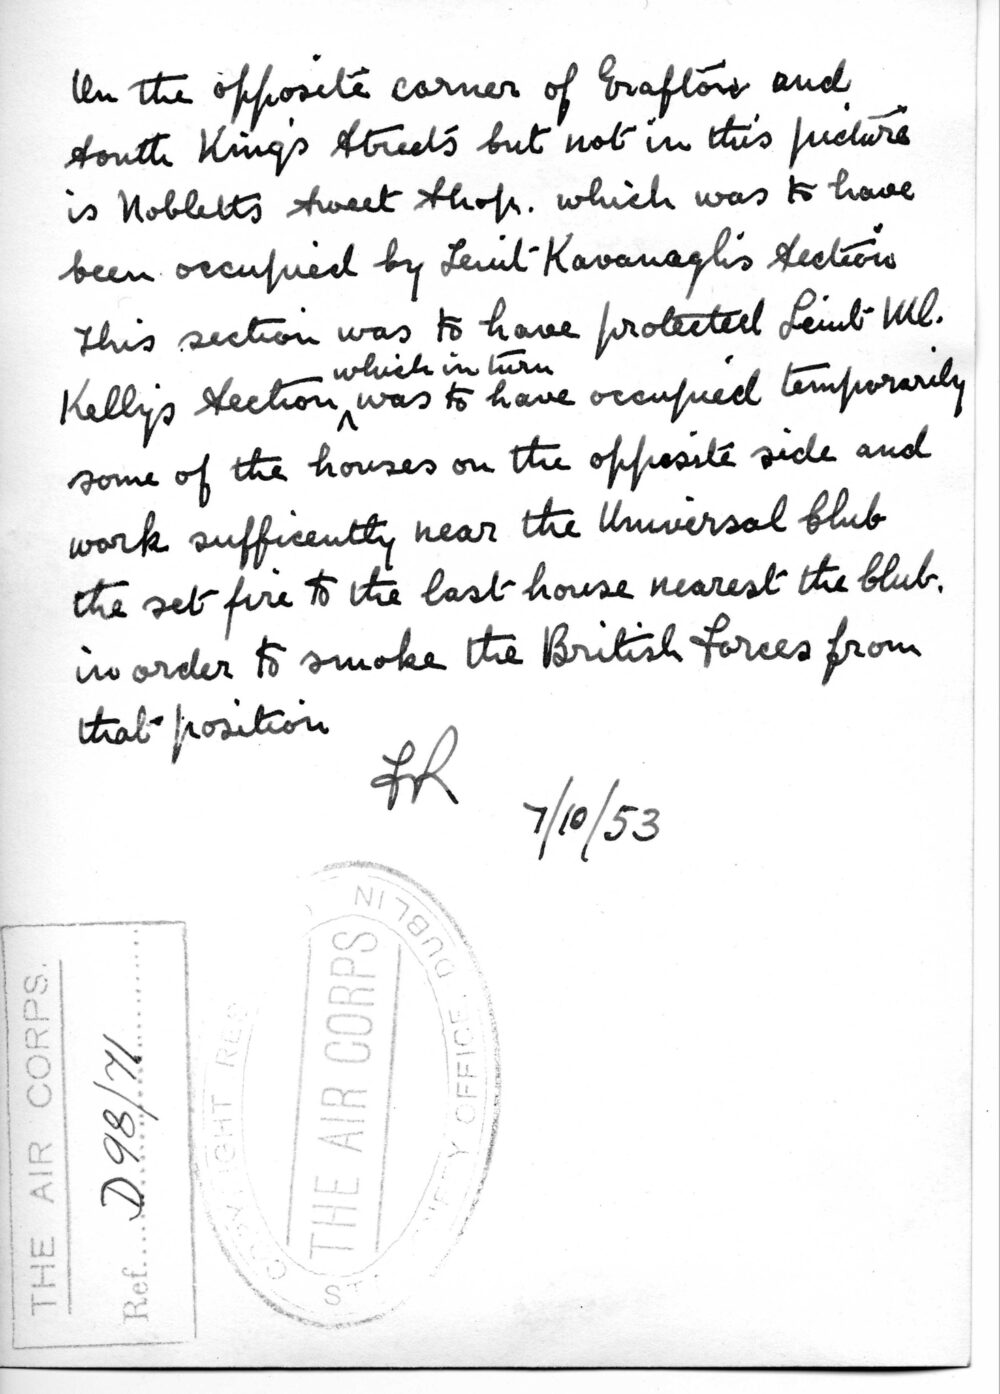 On the opposite corner of Grafton and
South King's Streets but not in this picture
is Nobletts Sweet Shop. which was to have
been occupied by Leiut Kavanagh's Section
This section was to have protected Leiut Ml.
which in turn
Kelly's Section ^ was to have occupied temporarily
some of the houses on the opposite side and
work sufficently near the Universal Club
the set fire to the last house nearest the Club.
in order to smoke the British Forces from
that position
7/10/53
THE AIR CORPS.
Ref. D98/71
THE AIR CORPS
COPYRIGHT RES
STATIONERY OFFICE, DUBLIN